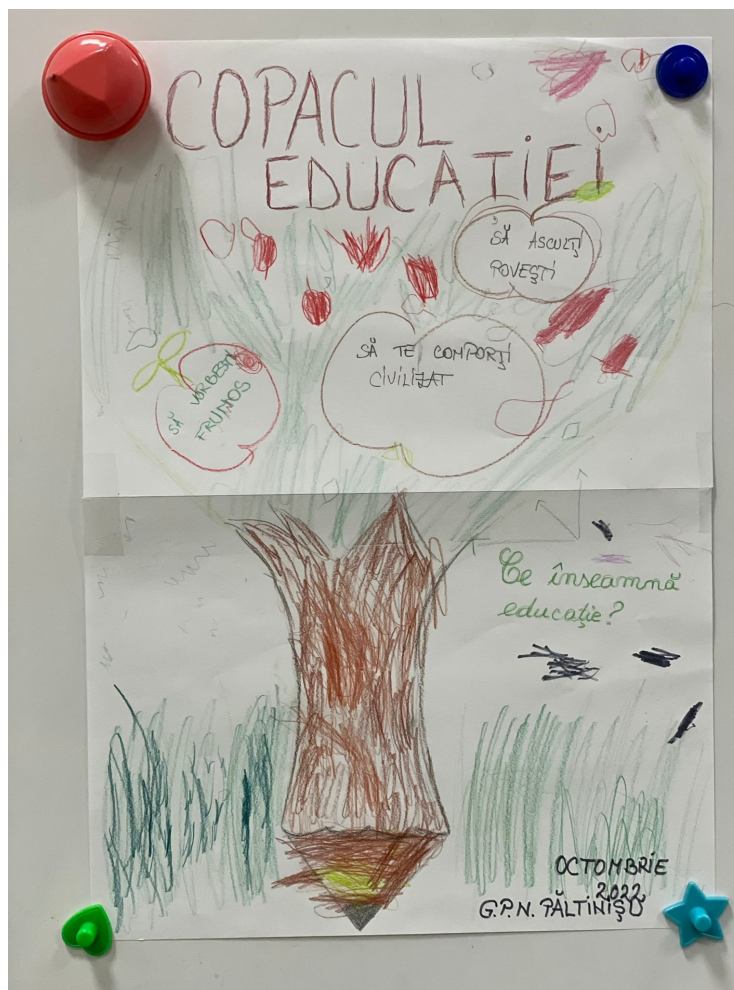 COPACUL
EDUCAȚIEI
SĂ ASCULȚI
POVEȘTI
SĂ TE COMPORȚI
CIVILIZAT
SĂ VORBEȘTI
FRUMOS
Ce înseamnă
educație?
OCTOMBRIE
2022
G.P.N. PĂLTINIȘU